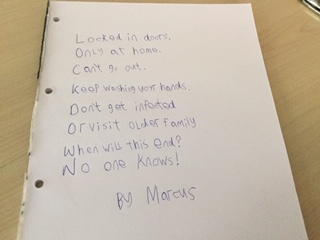 Locked in doors.
Only at home.
Can't go out.
Keep washing your hands.
Don't get infected
Or visit older family
When will this end?
No one knows!
By Marcus